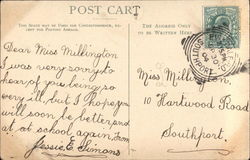 POST CARD
THIS SPACE MAY BE USED FOR CORRESPONDENCE, EXCEPT FOR FOREIGN ADDRESS.
THE ADDRESS ONLY TO BE WRITTEN HERE.
Dear Miss Millington
I was very sorry to
hear of you being so
very ill, but I hope you
will soon be better and
at school again. From
Jessie E. Simons
Miss Millington,
10 Hartwood Road
Southport.